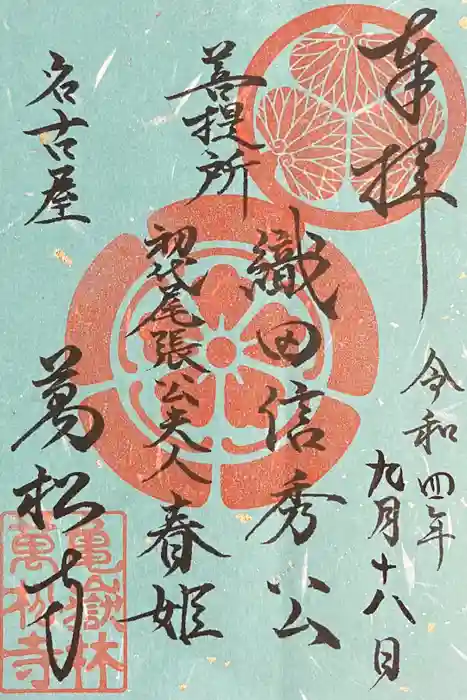 奉拝
令和四年
九月十八日
菩提所
織田信秀公
初代尾張公夫人春姫
名古屋
萬松寺
亀嶽林
萬松寺